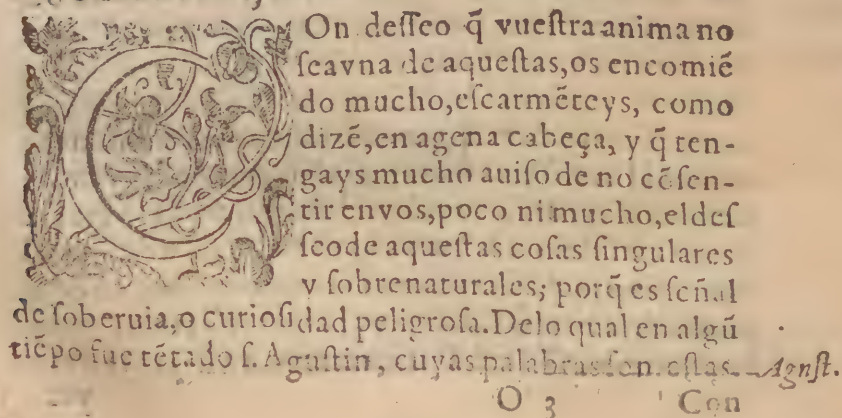 COn deſſeo q̃ vueſtra anima no
ſea vna de aqueſtas, os encomiẽ
do mucho, eſcarmẽteys, como
dizẽ, en agena cabeça, y q̃ ten-
gays mucho auiſo de no cõſen-
tir en vos, poco ni mucho, el deſ
ſeo de aqueſtas coſas ſingulares
y ſobrenaturales; porq̃ es ſeñal
de ſoberuia, o curioſidad peligroſa. De lo qual en algũ
tiẽpo fue tẽtado ſ. Aguſtin, cuyas palabras ſon eſtas. Aguſt.
O 3 Con